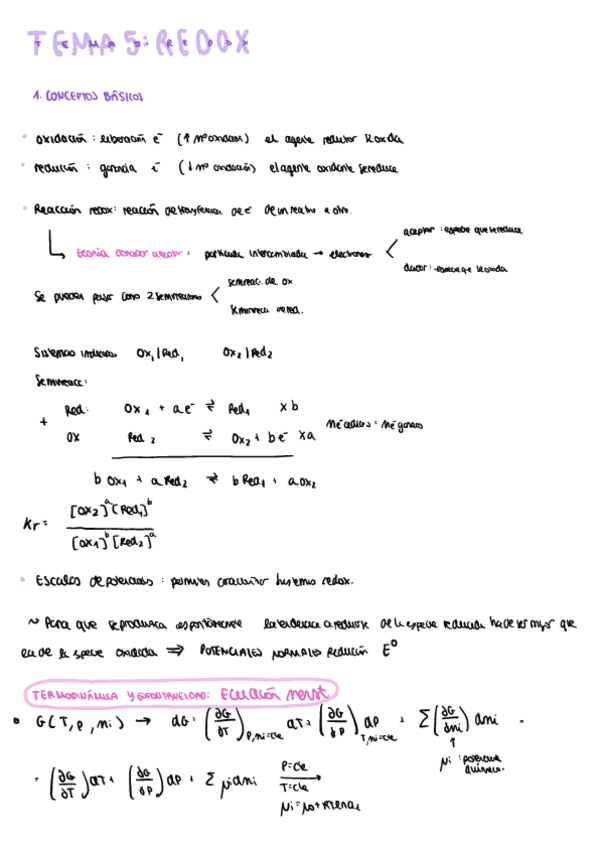 TEMA 5: REDOX
1. CONCEPTOS BÁSICOS
• oxidación: liberación e⁻ (↑ nº oxidación) el agente reductor se oxida
• reducción: ganancia e⁻ (↓ nº oxidación) el agente oxidante se reduce
• Reacción redox: reacción de transferencia de e⁻ de un reactivo a otro.
aceptor: especie que se reduce
teoría donador aceptor: partícula intercambiada → electrones
dador: especie que se oxida
semireac. de ox
Se pueden como 2 semireacciones
semireacc de red.
Sistemas Ox₁/Red₁ Ox₂/Red₂
Semireacc:
Red: Ox₁ + a e⁻ ⇌ Red₁ x b
+ nº e⁻ cedidos = nº e⁻ ganados
OX Red₂ ⇌ Ox₂ + b e⁻ x a
b Ox₁ + a Red₂ ⇌ b Red₁ + a Ox₂
Kr = [Ox₂]ᵃ [Red₁]ᵇ / [Ox₁]ᵇ [Red₂]ᵃ
• Escalas de potenciales: permiten sistemas redox.
~ Para que se produzca espontáneamente la tendencia a reducirse de la especie reducida ha de ser mayor que
la de la especie oxidada ⇒ POTENCIALES NORMALES REDUCCIÓN E⁰
TERMODINÁMICA Y ESPONTANEIDAD: ECUACIÓN nernst
• G(T, P, ni) → dG = (∂G/∂T)P,ni=cte dT + (∂G/∂P)T,ni=cte dP + Σ(∂G/∂ni) dni =
↑
μi: potencial químico.
= (∂G/∂T) dT + (∂G/∂P) dP + Σ μi dni
P=cte
T=cte
μi = μ0 + RTlnai